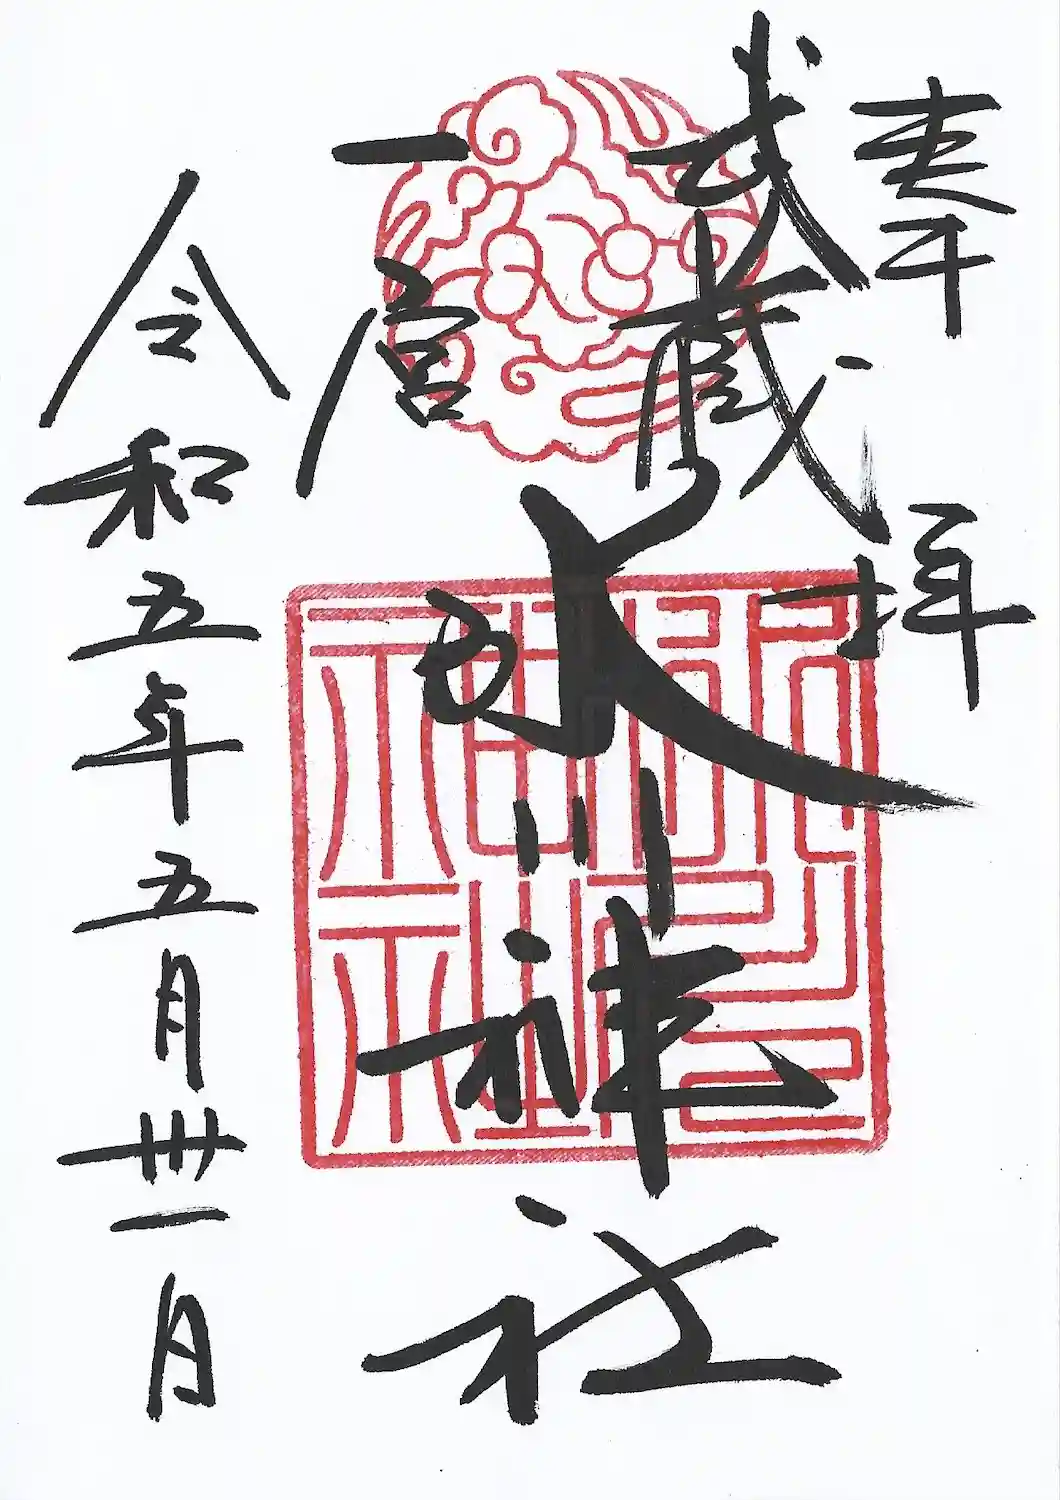 奉拝
武蔵
一宮
氷川神社
令和五年五月卅一日